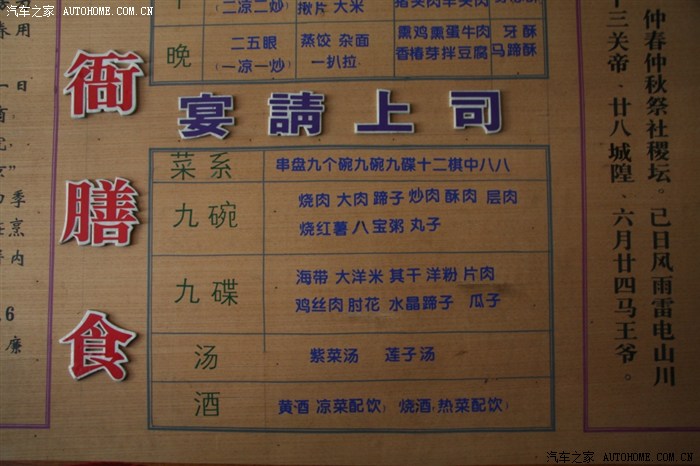 汽车之家 AUTOHOME.COM.CN
(二凉二炒) 揪片 大米
晚 二五眼 蒸饺 杂面 熏鸡熏蛋牛肉 牙酥
(一凉一炒) 一扒拉 香椿芽拌豆腐 马蹄酥
衙膳食
宴請上司
菜系 串盘九个碗九碗九碟十二棋中八八
九碗 烧肉 大肉 蹄子 炒肉 酥肉 层肉
烧红薯 八宝粥 丸子
九碟 海带 大洋米 其干 洋粉 片肉
鸡丝肉 肘花 水晶蹄子 瓜子
汤 紫菜汤 莲子汤
酒 黄酒(凉菜配饮) 烧酒(热菜配饮)
仲春仲秋祭社稷坛。已日风雨雷电山川
十三关帝．廿八城隍．六月廿四马王爷。
汽车之家 AUTOHOME.COM.CN